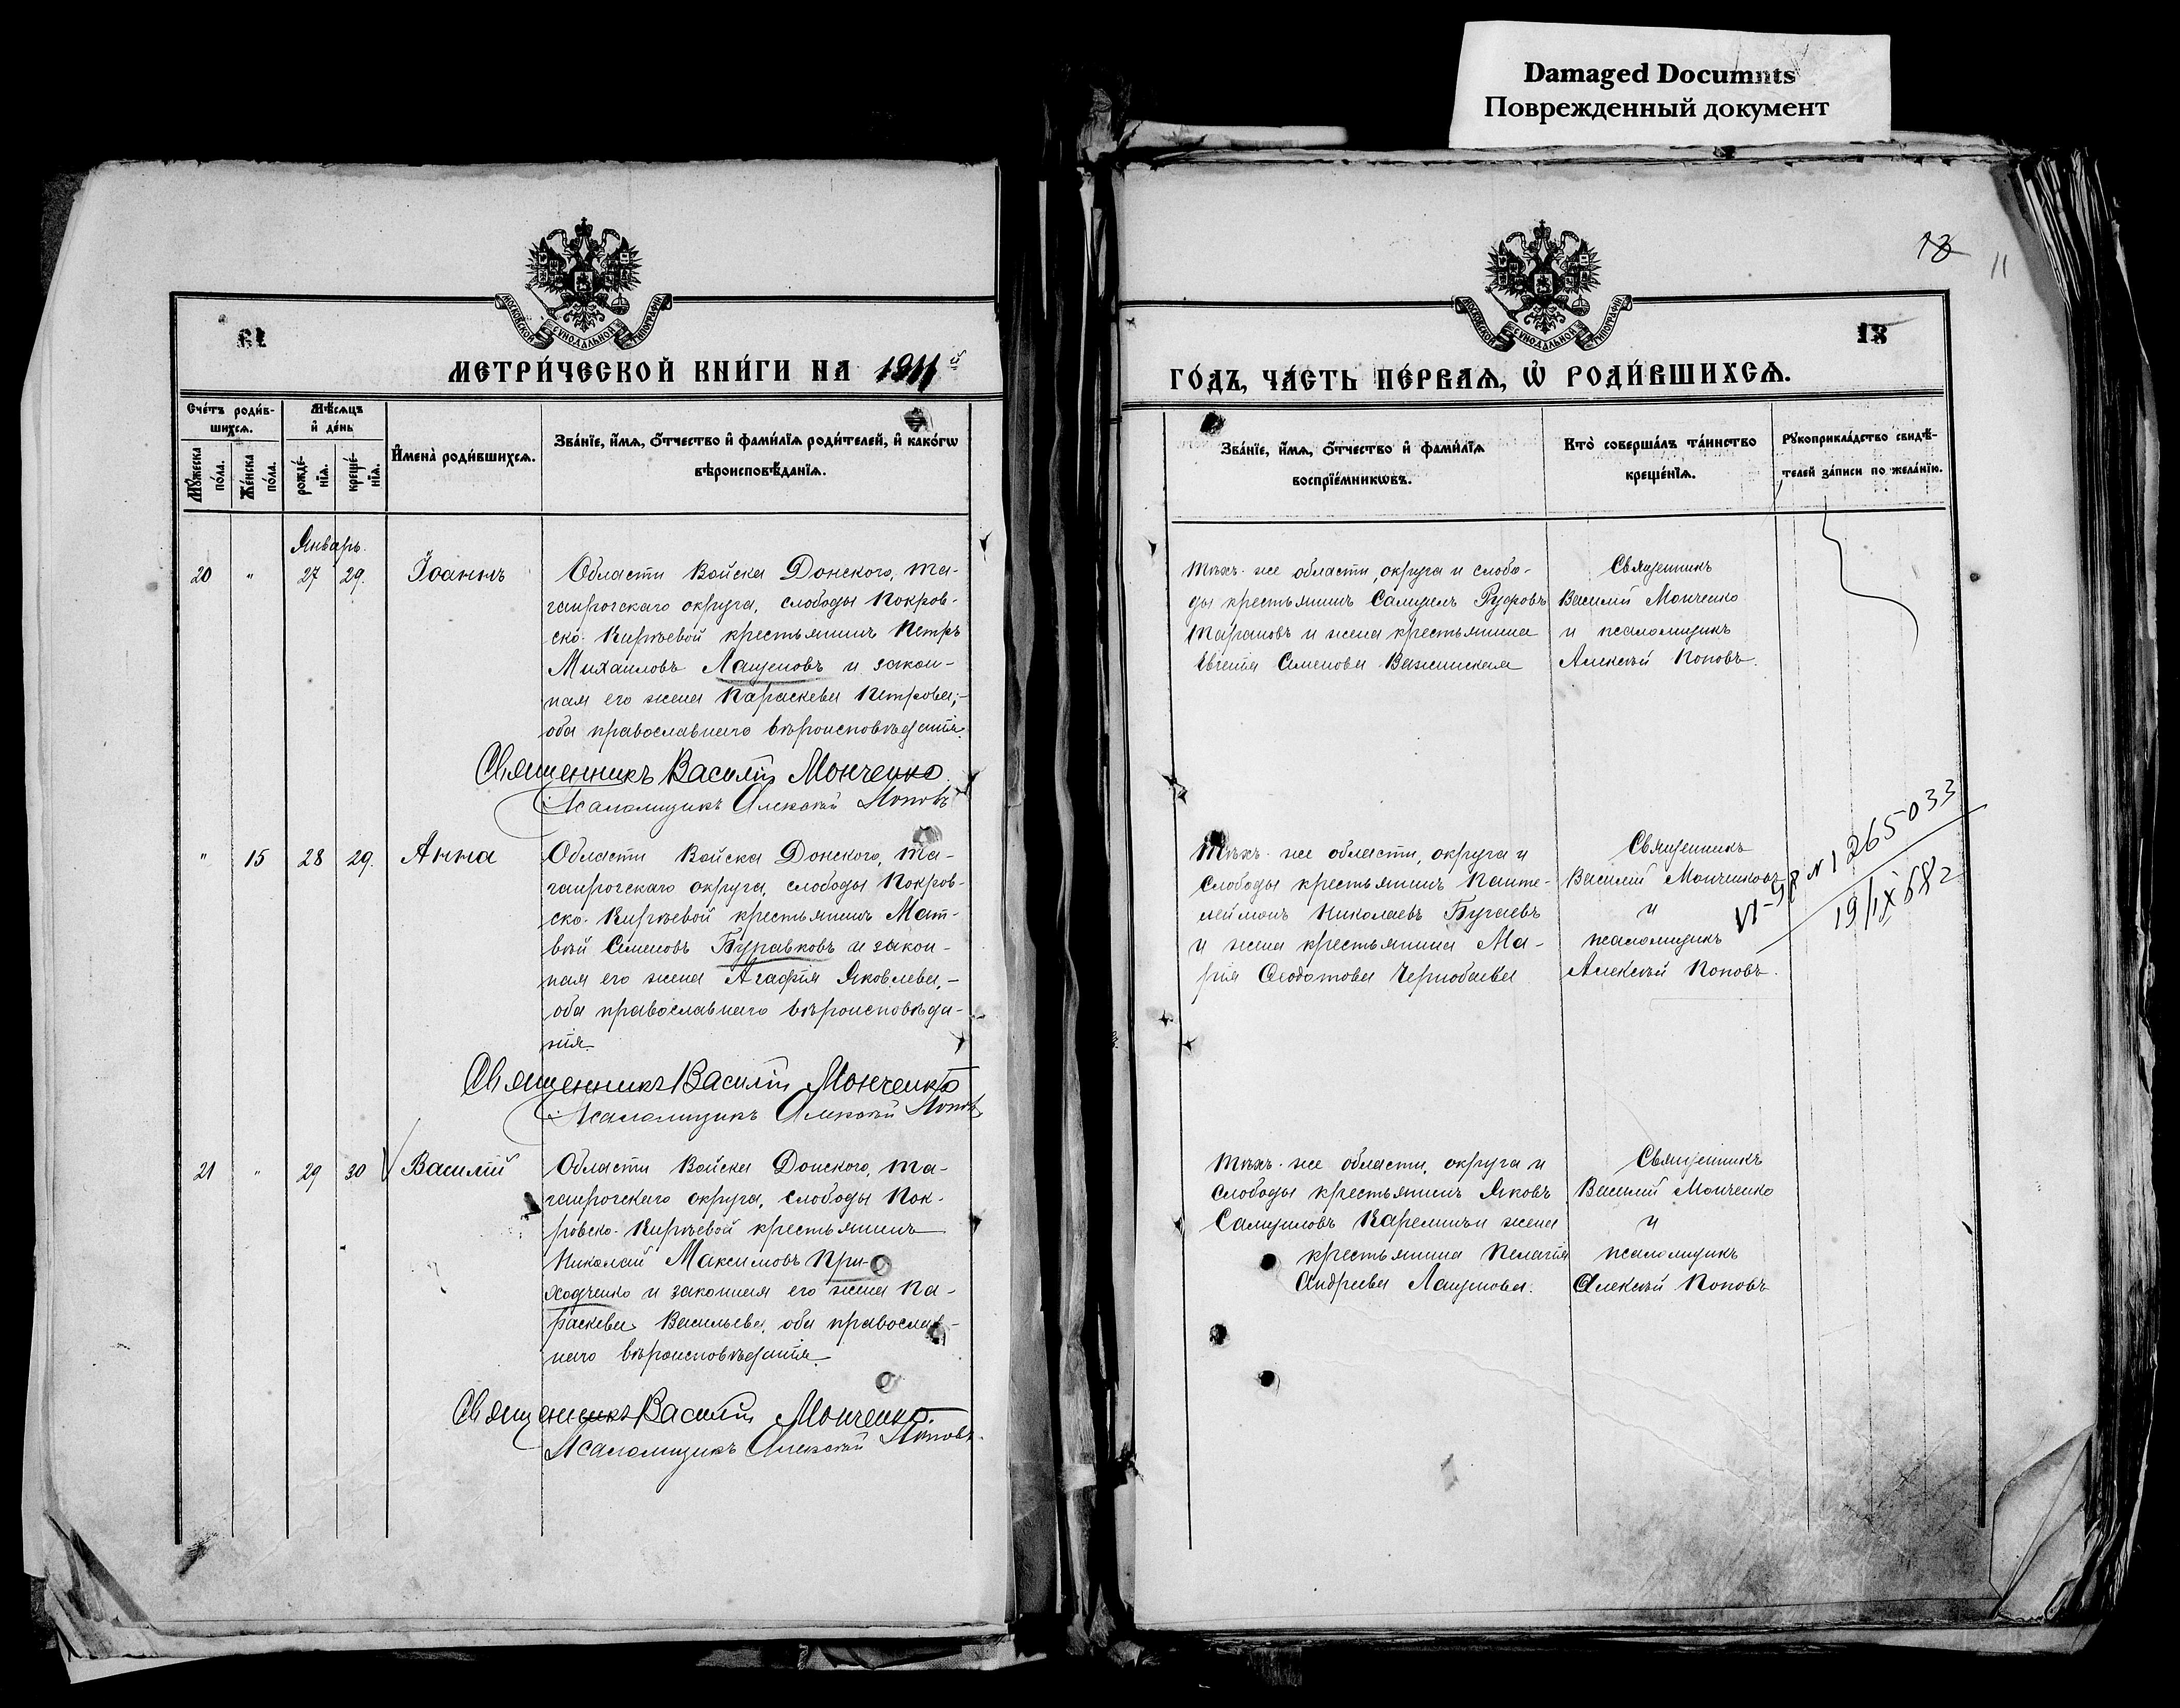 Damaged Documnts
Поврежденный документ
МОСКОВСКОЙ СѴНОДАЛЬНОЙ ТИПОГРАФІИ
МЕТРИ́ЧЕСКОЙ КНИ́ГИ НА 1911й
Сче́тъ роди́в-
шихсѧ.
Мѣ́сѧцъ
и҆ де́нь
Мꙋ́жеска
по́ла.
Же́нска
по́ла.
рожде́-
нїѧ.
креще́-
нїѧ.
И҆мена̀ роди́вшихсѧ.
Зва́нїе, и҆́мѧ, ѻ҆́тчество и҆ фами́лїѧ роди́телей, и҆ како́гѡ
вѣроисповѣ́данїѧ.
Январь.
20 " 27 29. Іоаннъ
Области Войска Донского, Та-
ганрогскаго округа, слободы Покров-
ско-Киреевой крестьянинъ Петръ
Михаиловъ Лащеновъ и закон-
ная его жена Параскева Петрова,-
оба православнаго вѣроисповѣданія.
Священникъ Василій Монченко
Псаломщикъ Алексѣй Поповъ
" 15 28 29. Анна
Области Войска Донского, Та-
ганрогскаго округа, слободы Покров-
ско-Киреевой крестьянинъ Мат-
вѣй Семеновъ Буравковъ и закон-
ная его жена Агафія Яковлева,-
оба православнаго вѣроисповѣда-
нія.
Священникъ Василій Монченко
Псаломщикъ Алексѣй Поповъ
21 " 29 30 Василій
Области Войска Донского, Та-
ганрогскаго округа, слободы Пок-
ровско-Киреевой крестьянинъ
Николай Максимовъ При-
ходченко и законная его жена Па-
раскева Васильева, оба православ-
наго вѣроисповѣданія.
Священникъ Василій Монченко.
Псаломщикъ Алексѣй Поповъ.
13
11
МОСКОВСКОЙ СѴНОДАЛЬНОЙ ТИПОГРАФІИ
13
ГО́ДЪ, ЧА́СТЬ ПЕ́РВАѦ, Ѽ РОДИ́ВШИХСѦ.
Зва́нїе, и҆́мѧ, ѻ҆́тчество и҆ фами́лїѧ
воспрїе́мникѡвъ.
Кто̀ соверша́лъ та́инство
креще́нїѧ.
Рꙋкоприкла́дство свидѣ́-
телей за́писи по жела́нїю.
Тѣхъ-же области, округа и слобо-
ды крестьянинъ Самуилъ Руфовъ
Тарановъ и жена крестьянина
Евгенія Семенова Важинская
Священникъ
Василій Монченко
и псаломщикъ
Алексѣй Поповъ.
Тѣхъ-же области, округа и
слободы крестьянинъ Панте-
леймонъ Николаевъ Бугаевъ
и жена крестьянина Ма-
рія Ѳеодотова Чернобаева
Священникъ
Василій Монченковъ
и
псаломщикъ
Алексѣй Поповъ.
№ 1265033
19/IX 68
Тѣхъ-же области, округа и
слободы крестьянинъ Яковъ
Самуиловъ Карелинъ и жена
крестьянина Пелагія
Андреева Лащенова.
Священникъ
Василій Монченко
и
псаломщикъ
Алексѣй Поповъ